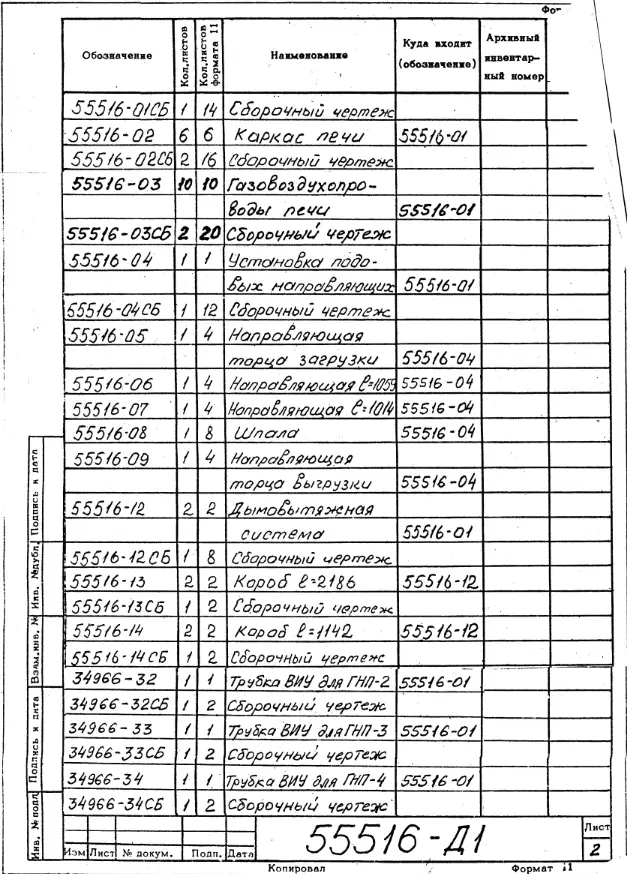 Фо
Обозначение Кол.листов Кол.листов формата 11 Наименование Куда входит (обозначение) Архивный инвентар- ный номер
55516-01СБ 1 14 Сборочный чертеж
55516-02 6 6 Каркас печи 55516-01
55516-02СБ 2 16 Сборочный чертеж
55516-03 10 10 Газовоздухопро-
воды печи 55516-01
55516-03СБ 2 20 Сборочный чертеж
55516-04 1 1 Установка подо-
вых направляющих 55516-01
55516-04СБ 1 12 Сборочный чертеж
55516-05 1 4 Направляющая
торца загрузки 55516-04
55516-06 1 4 Направляющая ℓ=1059 55516-04
55516-07 1 4 Направляющая ℓ=1014 55516-04
55516-08 1 8 Шпала 55516-04
55516-09 1 4 Направляющая
торца выгрузки 55516-04
55516-12 2 2 Дымовытяжная
система 55516-01
55516-12СБ 1 8 Сборочный чертеж
55516-13 2 2 Короб ℓ=2186 55516-12
55516-13СБ 1 2 Сборочный чертеж
55516-14 2 2 Короб ℓ=1142 55516-12
55516-14СБ 1 2 Сборочный чертеж
34966-32 1 1 Трубка ВИУ для ГНП-2 55516-01
34966-32СБ 1 2 Сборочный чертеж
34966-33 1 1 Трубка ВИУ для ГНП-3 55516-01
34966-33СБ 1 2 Сборочный чертеж
34966-34 1 1 Трубка ВИУ для ГНП-4 55516-01
34966-34СБ 1 2 Сборочный чертеж
Подпись и дата
Инв. №дубл.
Взам.инв. №
Подпись и дата
Инв. № подл
55516-Д1
Лист
2
Изм Лист № докум. Подп. Дата
Копировал Формат 11